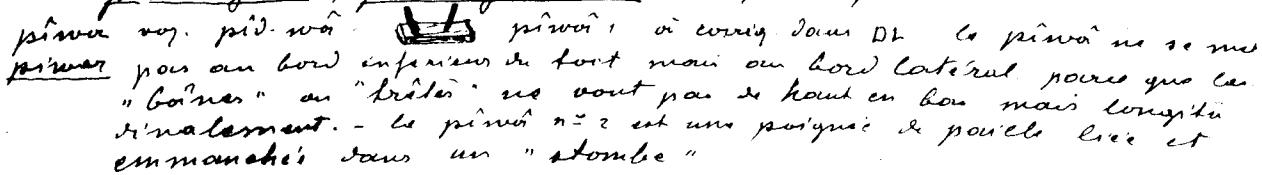 pîwwa voy. pîd-wâ pîwâ 1 à corrig dans DL le pîwâ ne se met
pîwwas pas au bord inférieur du toit mais au bord latéral parce que les
"bâines" ou "trâlès" ne vont pas de haut en bas mais longitu
dinalement. - le pîwâ n° 2 est une poignée de paille liée et
emmanchée dans un "stombe"